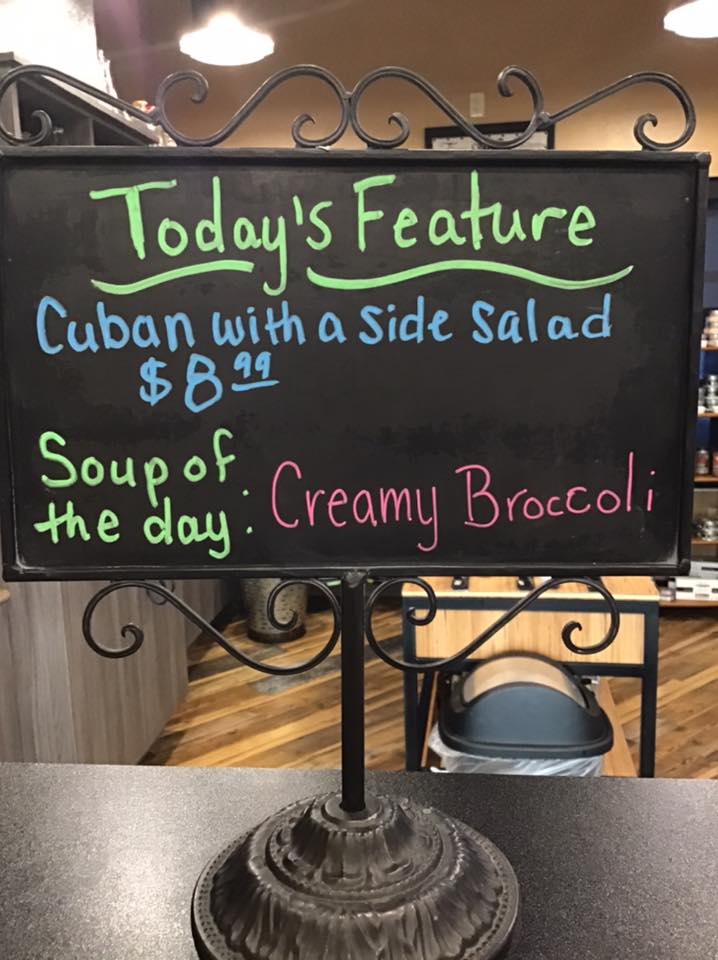 Today's Feature
Cuban with a side salad
$8.99
Soup of
the day: Creamy Broccoli